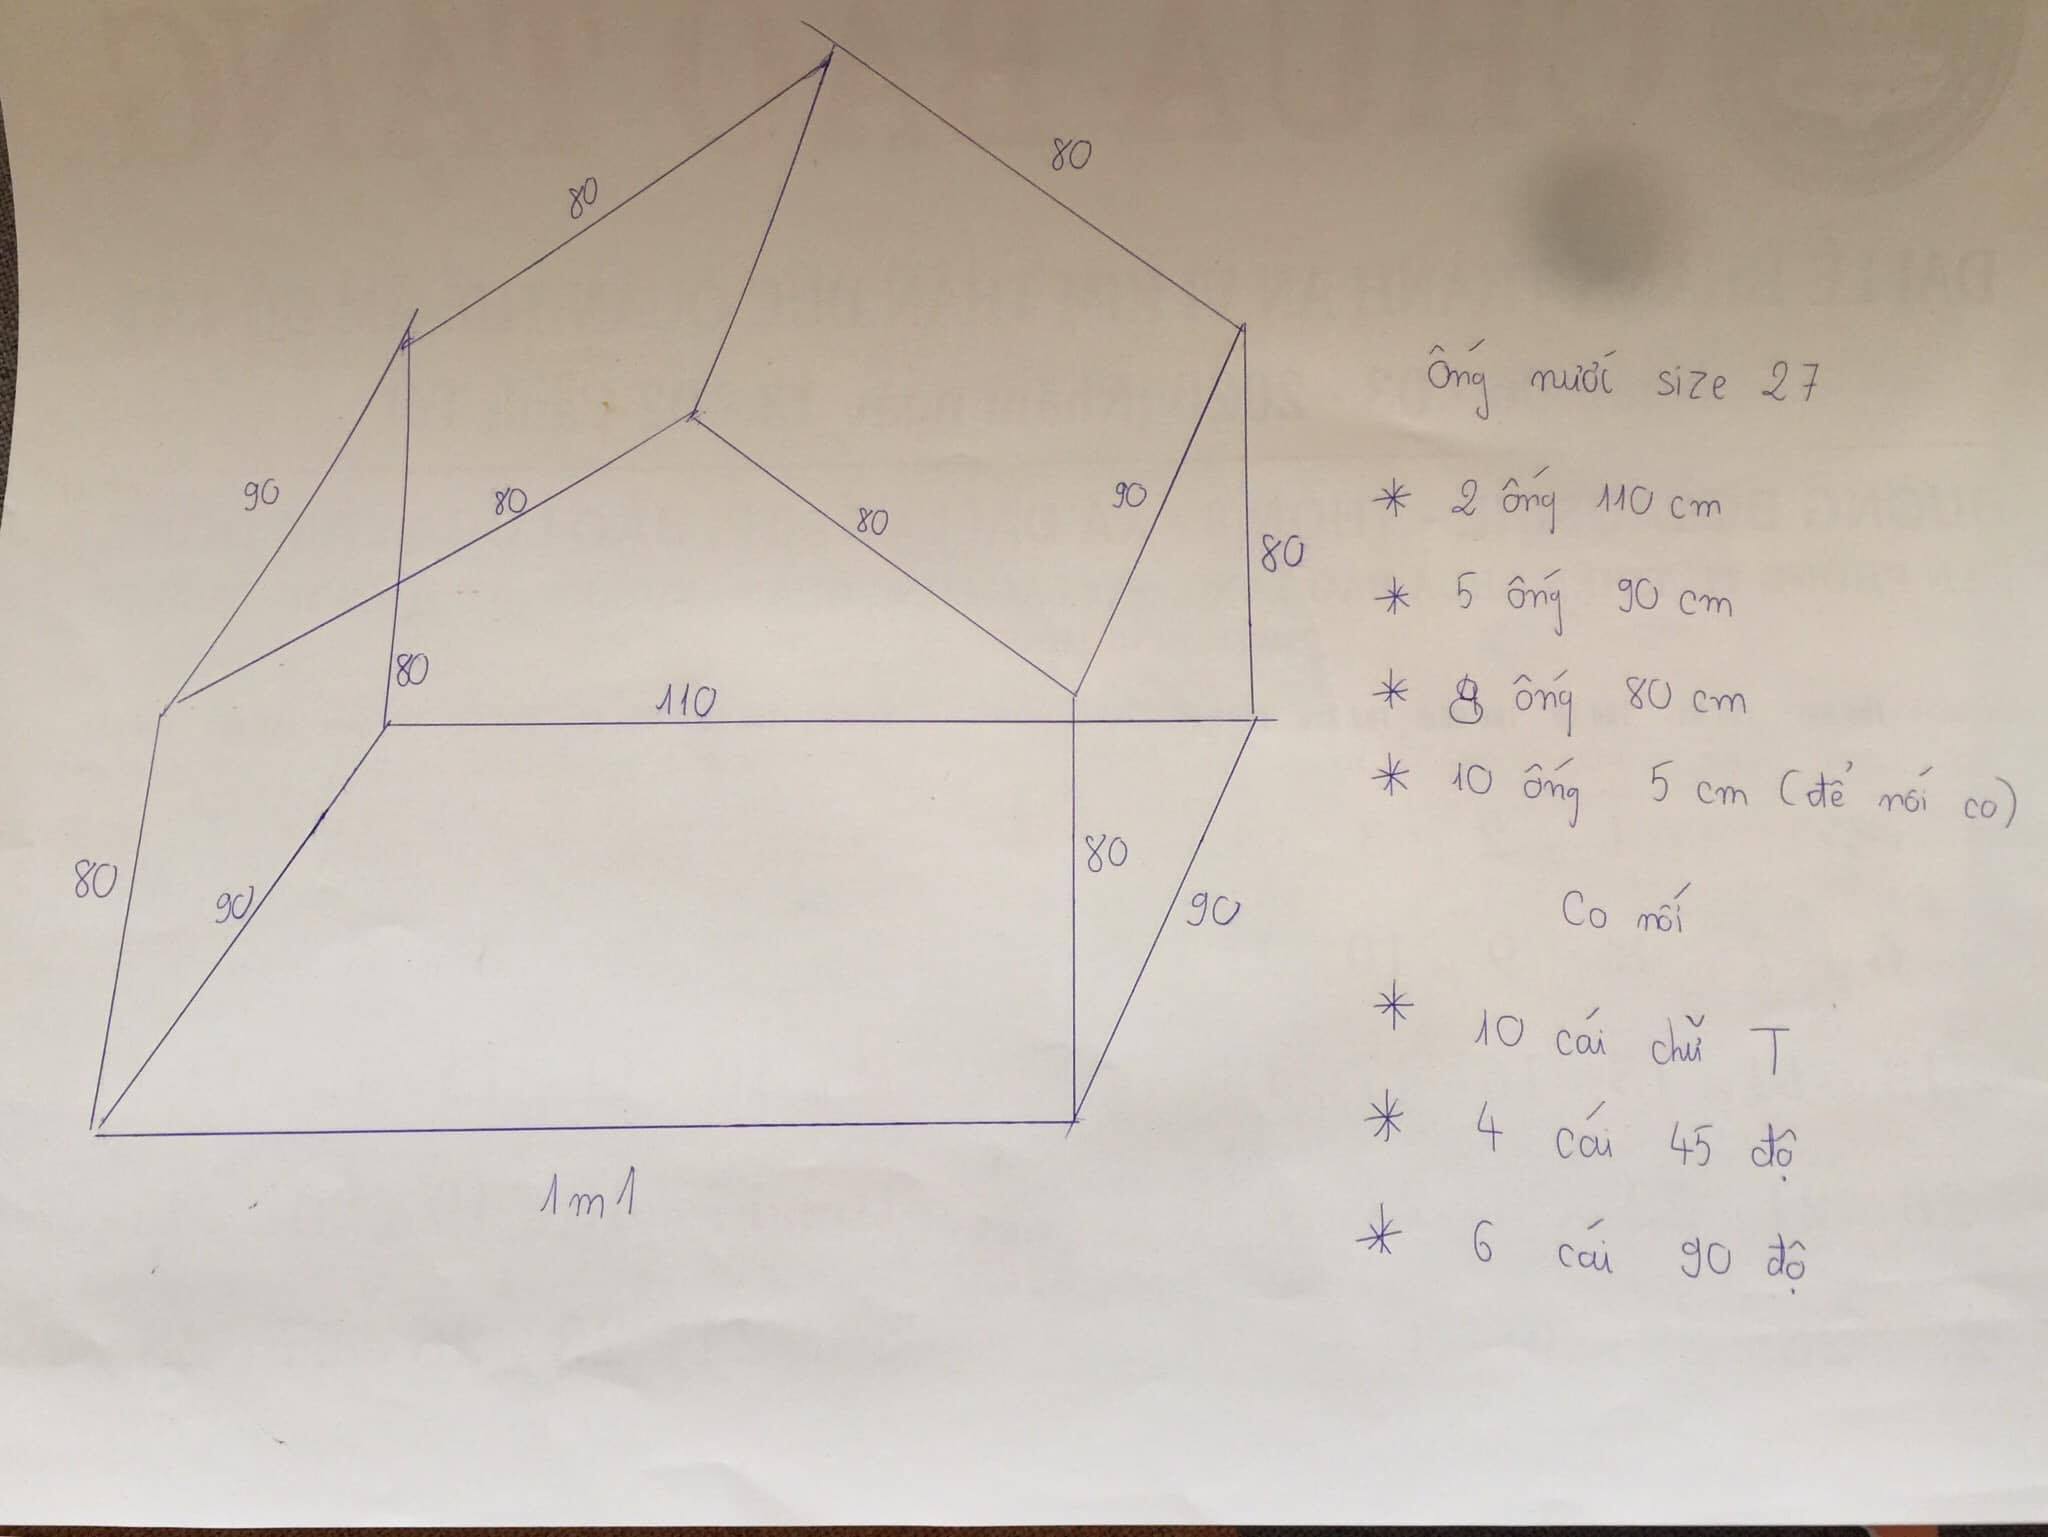 80
80
90
80
80
90
80
80
110
80
90
80
90
1m1
ống nước size 27
* 2 ống 110 cm
* 5 ống 90 cm
* 8 ống 80 cm
* 10 ống 5 cm (để nối co)
Co nối
* 10 cái chữ T
* 4 cái 45 độ
* 6 cái 90 độ